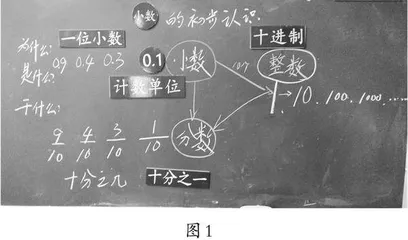 小数 的初步认识
为什么: 一位小数 十进制
是什么: 0.9 0.4 0.3 0.1 小数 整数
计数单位 1→10、100、1000、……
干什么:
9/10 4/10 3/10 1/10 分数
十分之几 十分之一
图1